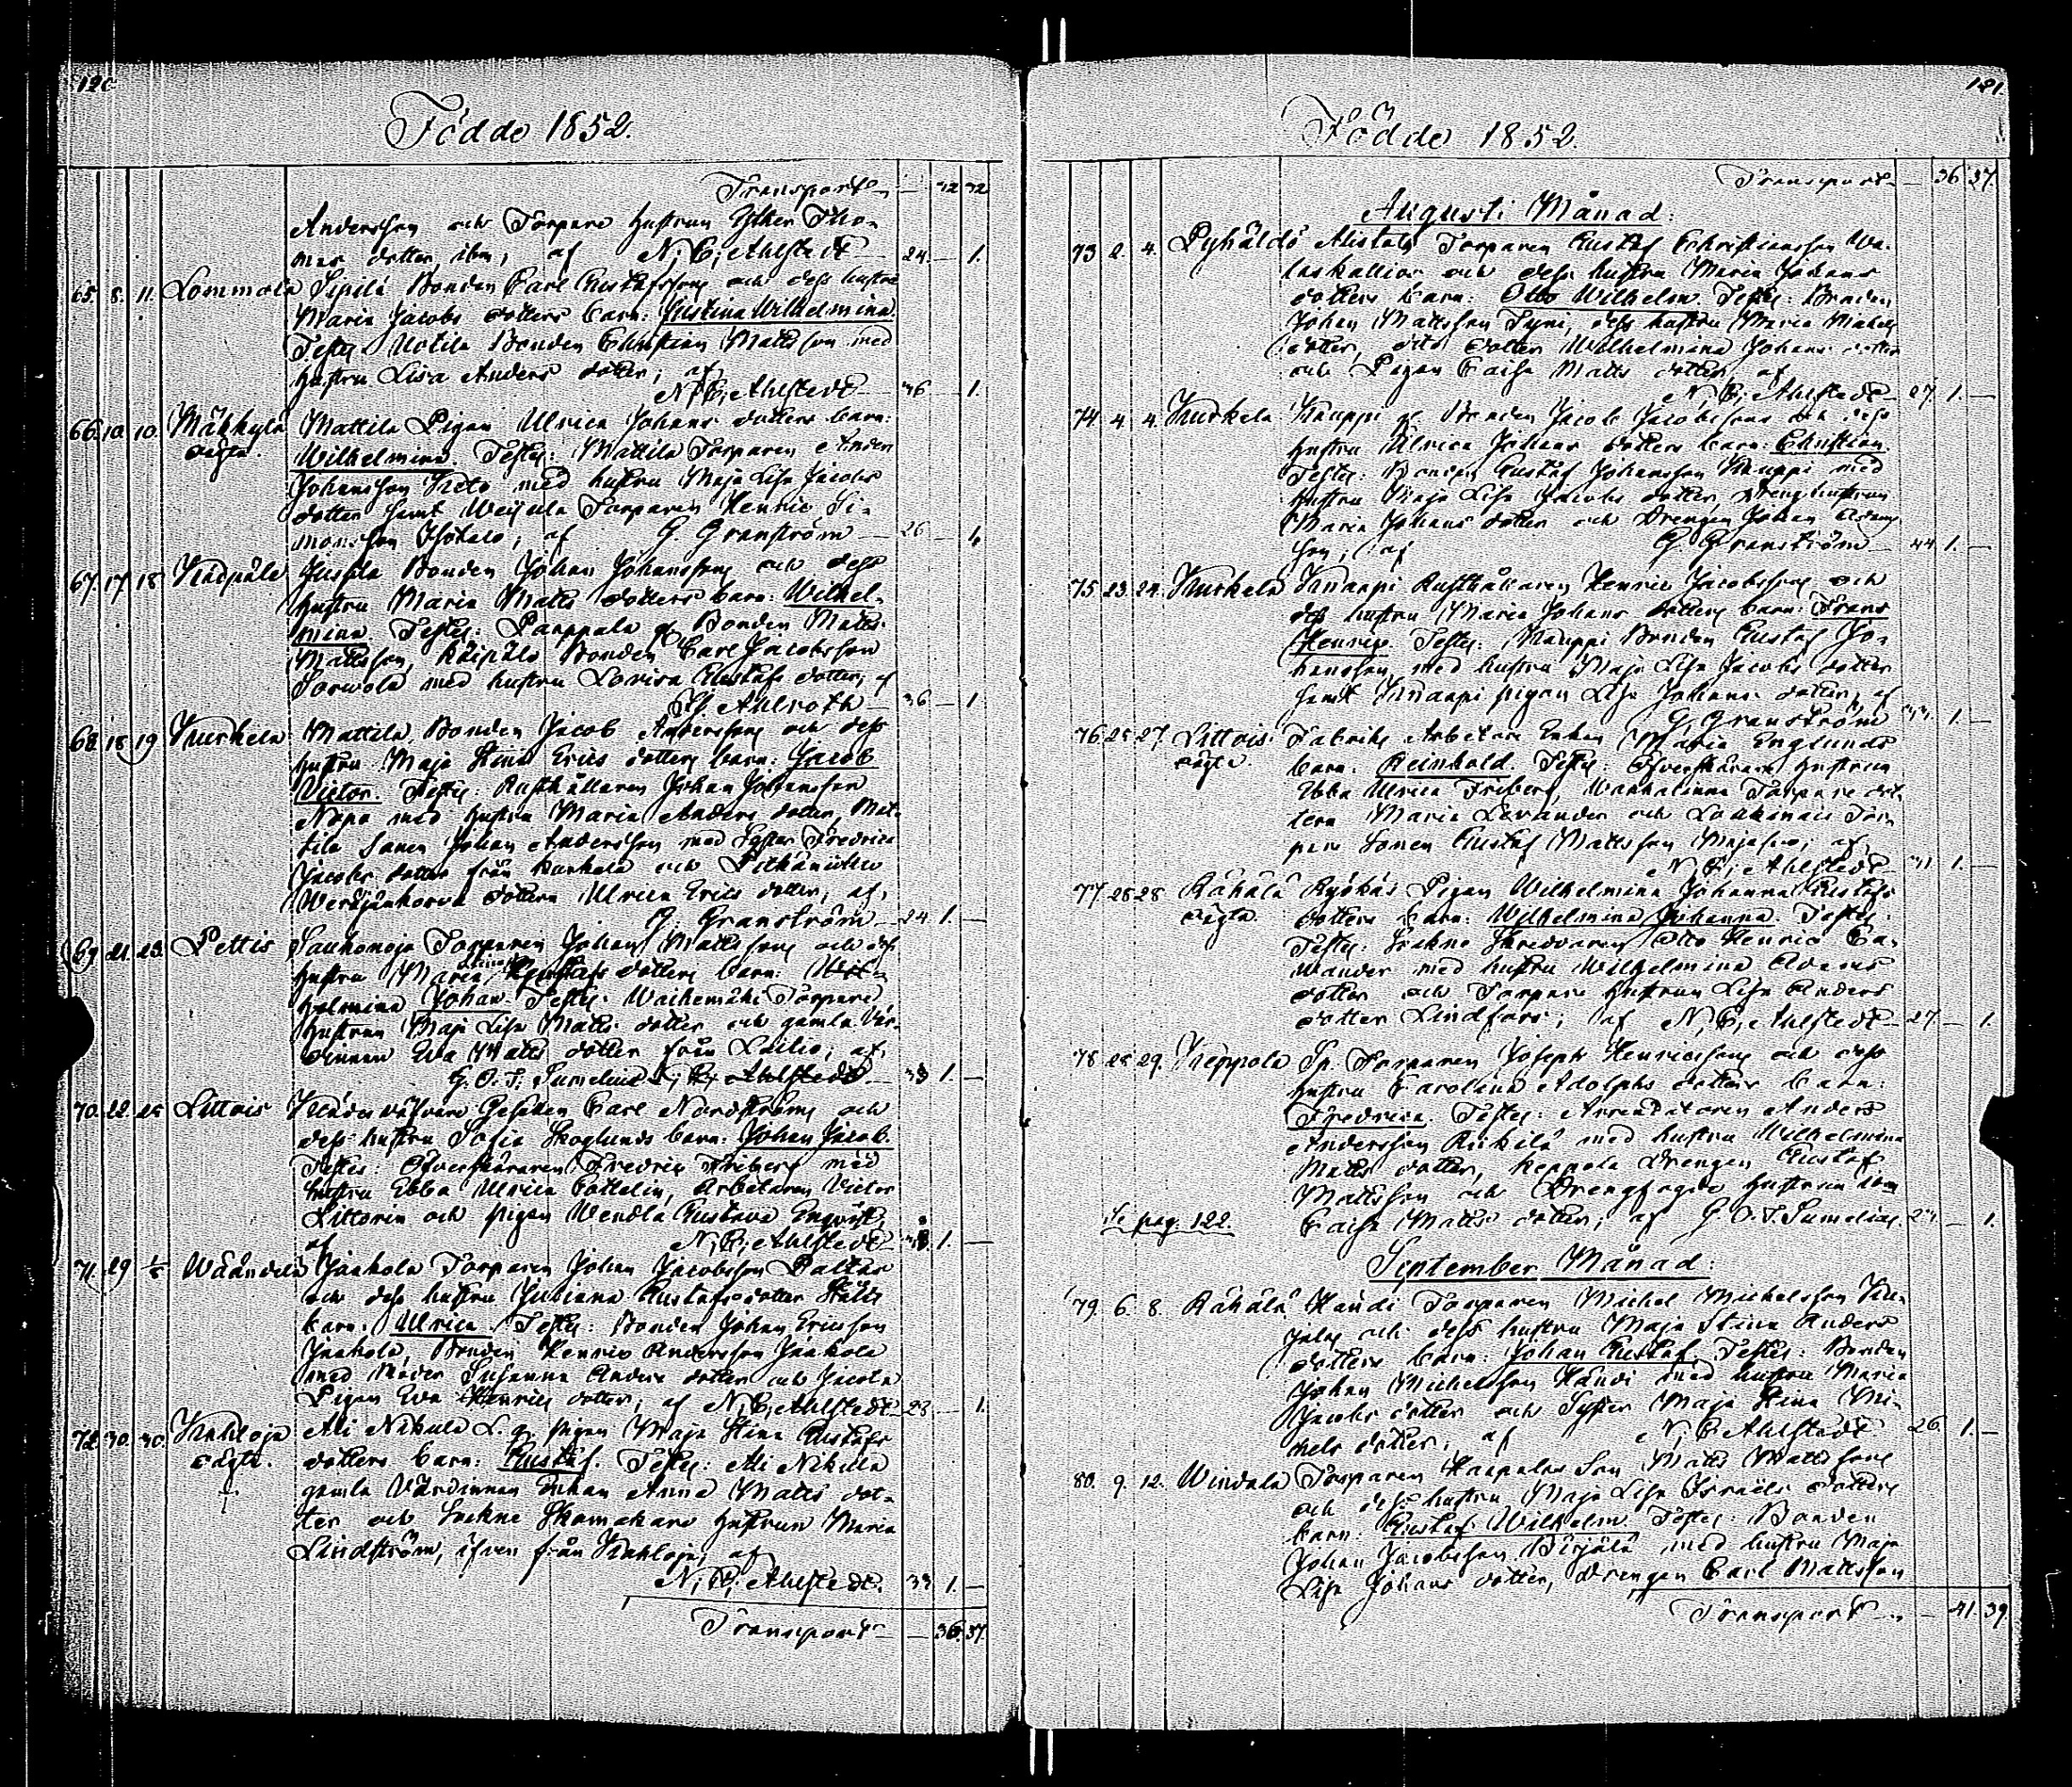 120
Födde 1852.
Transport — 32 32
Andersson och Torpare hustrun Tho-
mas dotter, ibm, af N; C; Ahlstedt 24. — 1.
65. 8. 11. Lommola Sipilä Bonden Carl Gustafsson och dess hustru
Maria Jacobs dotters barn: Justina Wilhelmina.
Testes: Uotila Bonden Christian Mattsson med
hustru Lisa Anders dotter; af
N; C; Ahlstedt 36 — 1.
66. 10. 10. Mäkkylä Mattila Pigan Ulrica Johans dotters barn:
oägta. Wilhelmina. Testes: Mattila Torparen Anders
Johansson med hustru Maja Lisa Jacobs
dotter samt Torparen Henric Si-
monsson; af G. Granström — 26 — 1
67. 17. 18. Bonden Johan Johansson och dess
hustru Maria Matts dotters barn: Wilhel-
mina. Testes: Bonden Matts
Mattsson, Bonden Carl Jacobsson
med hustru Lovisa Gustafs dotter, af
Ahlroth — 36 — 1.
68. 18. 19. Kurkela Mattila Bonden Jacob Andersson och dess
hustru Maja Stina Erics dotters barn: Jacob
Victor. Testes: Rusthållaren Johan Johansson
med hustru Maria Anders dotter, Mat-
tila Sonen Johan Andersson med Syster Fredrica
Jacobs dotter från och
dottern Ulrica Erics dotter; af
G. Granström — 24. 1. —
69. 21. 23. Pettis Torparen Johan Mattsson och dess
hustru Maria Gustafs dotters barn: Wil-
helmina Johan. Testes: Torpare
hustrun Maja Lisa Matts dotter och gamla Vär-
dinnan Eva Matts dotter från af
G. O. T. Sumelius N; C; Ahlstedt — 33 1. —
70. 22. 25 Littois Gesällen Carl Nordström och
dess hustru Sofia Skoglunds barn: Johan Jacob.
Testes: Öfverskäraren Fredric Friberg med
hustru Ebba Ulrica, Arbetaren Victor
Littorin och pigan Wendla Gustava Enqvist,
af N; C; Ahlstedt 1. —
71. 29 Wääntelä Jaakola Torparen Johan Jacobsson
och dess hustru Juliana Gustafs dotter
barn: Ulrica. Testes: Bonden Johan Ericsson
Jaakola, Bonden Henric Andersson Jaakola
med Moder Susanna Anders dotter och
Pigan Eva Henrics dotter, af N; C; Ahlstedt 28 — 1.
72. 30. 30. Kukkoja Ali Nikula pigan Maja Stina Gustafs
oägta. dotters barn: Gustaf. Testes: Ali Nikula
gamla Värdinnan Enkan Anna Matts dot-
ter och Sockne Skomakare hustrun Maria
Lindström, från af
N; C; Ahlstedt. 33 1. —
Transport — 36. 37.
121.
Födde 1852.
Transport — 36 37.
Augusti Månad:
73 2. 4. Pyhäldö Alistalo Torparen Gustaf Christiansson
och dess hustru Maria Johans
dotters barn: Otto Wilhelm. Testes: Bonden
Johan Mattsson, dess hustru Maria
dotter, dito dotter Wilhelmina Johans dotter
och Pigan Caisa Matts dotter, af
N; C; Ahlstedt — 27. 1. —
74 4 4. Kurkela Knuppi Bonden Jacob Jacobsson och dess
hustru Ulrica Johans dotters barn: Christian.
Testes: Bonden Gustaf Johansson Knuppi med
hustru Maja Lisa Jacobs dotter, Dreng hustrun
Maria Johans dotter och Drengen Johan Adams
son; af G. Granström — 44 1. —
75 23. 24. Kurkela Knaapi Rusthållaren Henric Jacobsson och
dess hustru Maria Johans dotters barn: Frans
Henric. Testes: Knuppi Bonden Gustaf Jo-
hansson med hustru Maja Lisa Jacobs dotter
samt Knaapi pigan Lisa Johans dotter, af
G. Granström 1. —
76 25 27. Littois Fabriks Arbetare Enkan Maria Englunds
oägta. barn: Reinhold. Testes: Öfverskärare hustrun
Ebba Ulrica Friberg, Torpare dot-
tern Maria Levander och Tor-
pare Sonen Gustaf Mattsson; af
N; C; Ahlstedt 1. —
77. 28 28 Rähälä Pigan Wilhelmina Johanna Gustafs
oägta. dotters barn: Wilhelmina Johanna. Testes:
Testes: Sockne Skreddaren Otto Henric Ca-
wander med hustru Wilhelmina Adams
dotter och Torpare hustrun Lisa Anders
dotter Lindfors; af N; C; Ahlstedt — 27. — 1.
78 28 29. Keppola Torparen Joseph Henricsson och dess
hustru Carolina Adolphs dotters barn:
Fredrica. Testes: Arrendatoren Anders
Andersson med hustru Wilhelmina
Matts dotter, Keppola Drengen Gustaf
Mattsson och Drengfogde hustrun ibm
Se pag. 122. Caisa Matts dotter; af G. O. T. Sumelius. — 1.
September Månad:
79. 6. 8. Rähälä Torparen Michel Michelsson
och dess hustru Maja Stina Anders
dotters barn: Johan Gustaf. Testes: Bonden
Johan Michelsson med hustru Maria
Jacobs dotter och Syster Maja Stina Mi-
chels dotter; af N; C. Ahlstedt 26. 1. —
80. 9. 12. Windala Torparen Son Matts Mattsson
och dess hustru Maja Lisa Israels dotters
barn: Gustaf Wilhelm Testes: Bonden
Johan Jacobsson med hustru Maja
Lisa Johans dotter, Drengen Carl Mattsson
Transport — 41. 39.